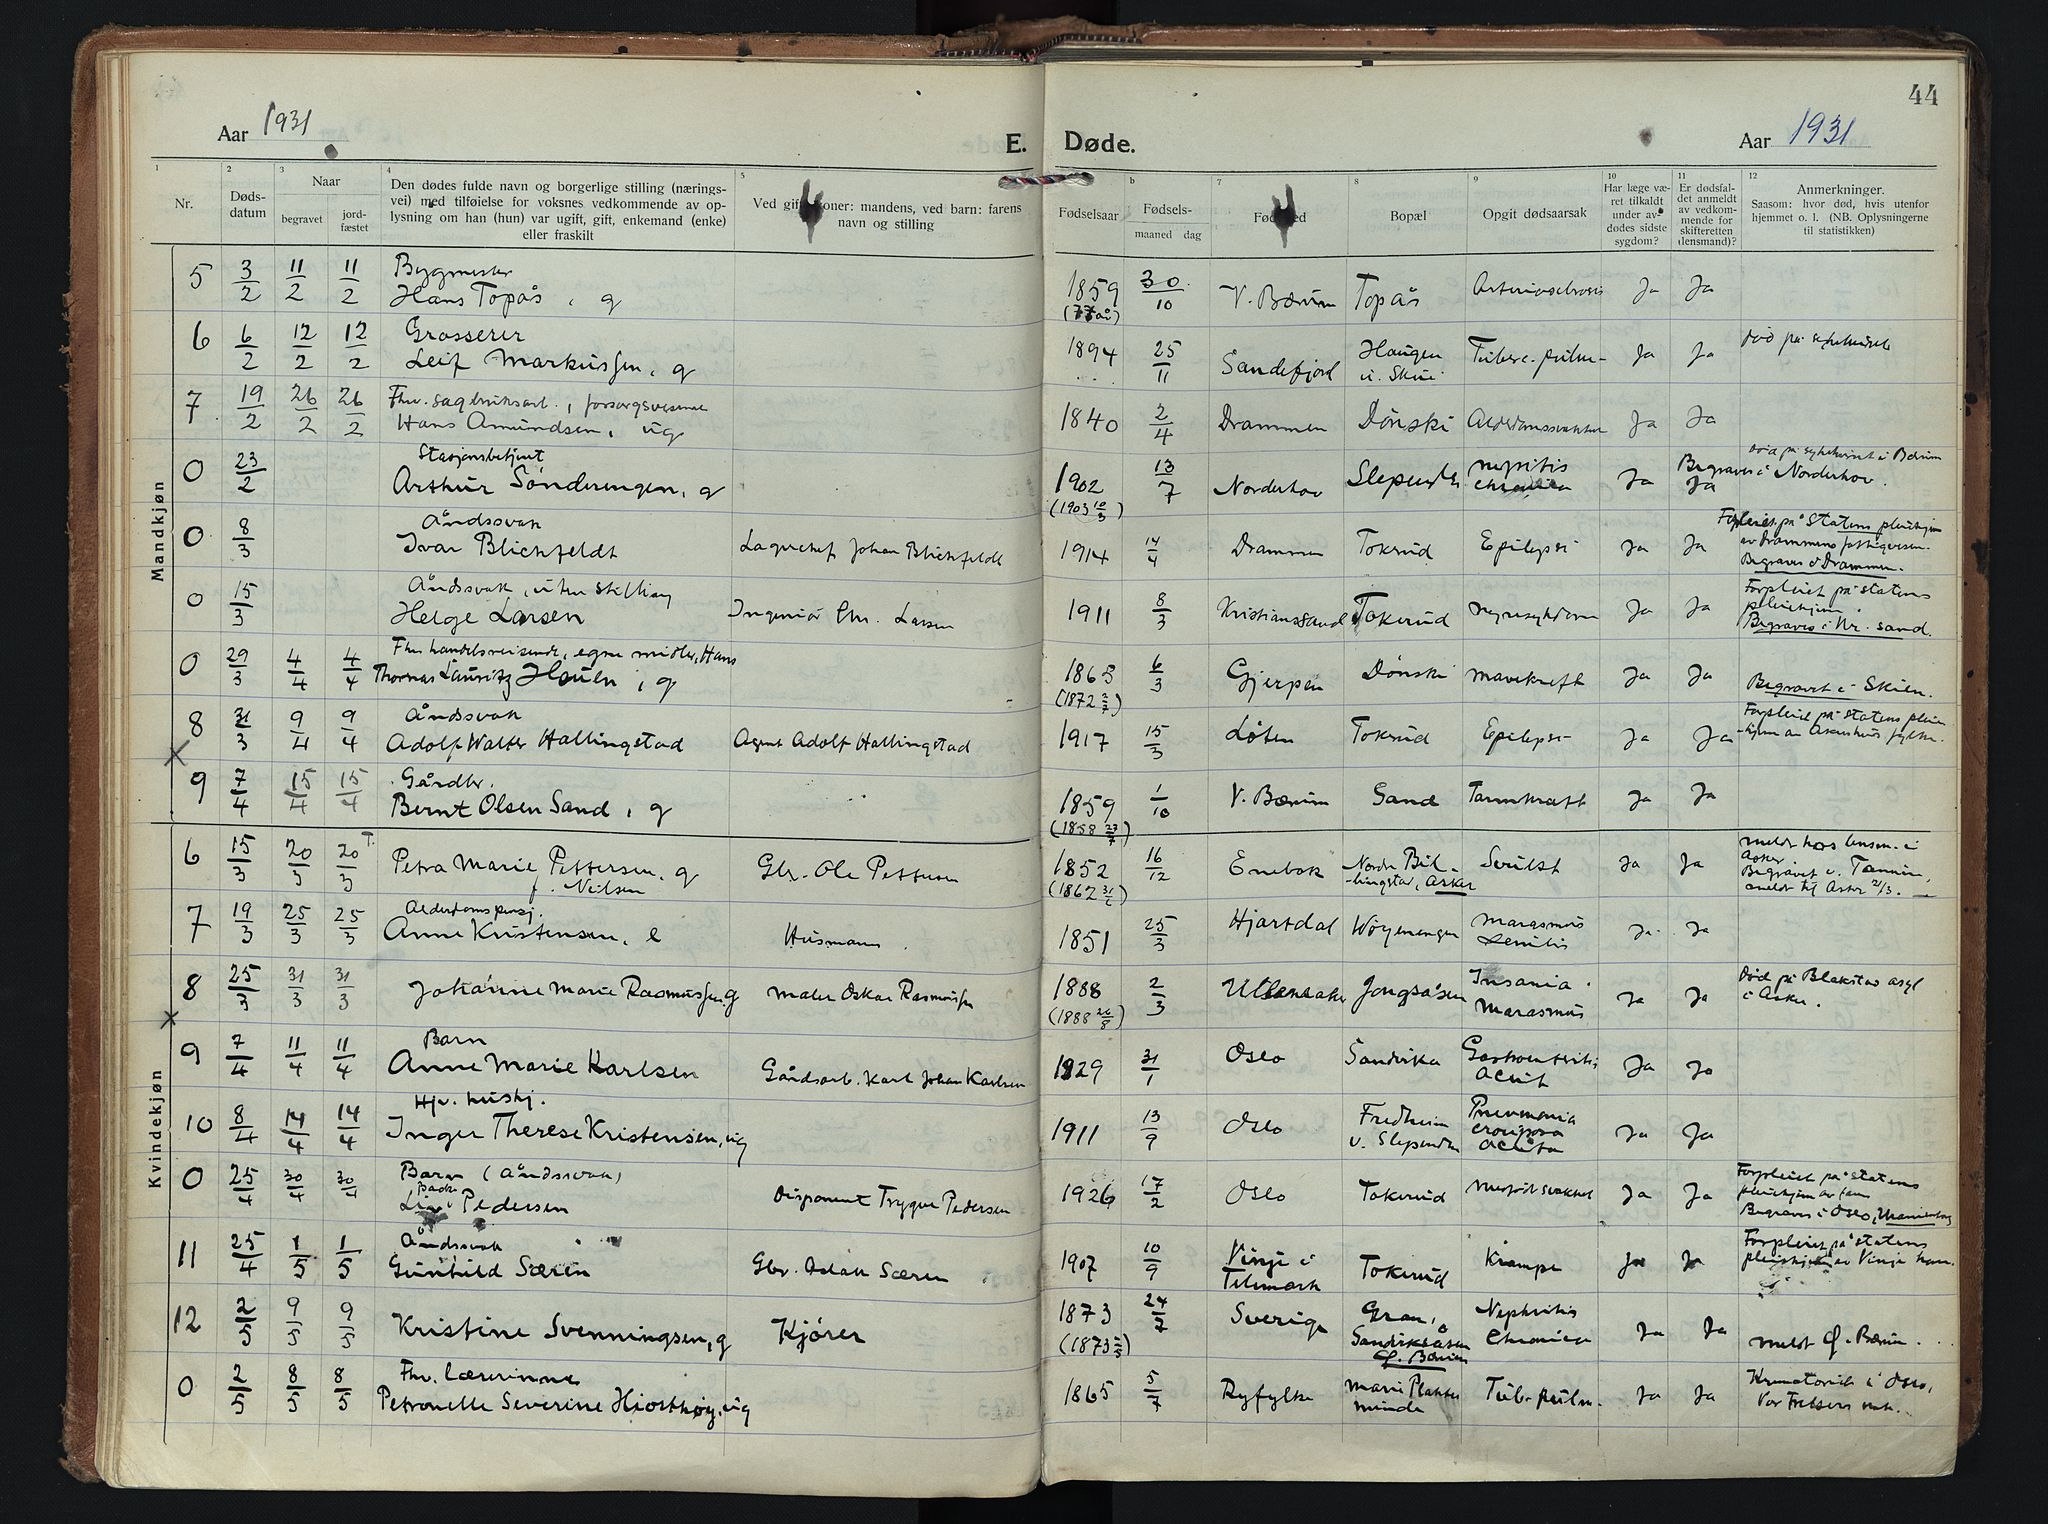 44
Aar 1931
E. Døde.
Aar 1931
1 2 3 4 5 b 7 8 9 10 11 12
Nr.
Døds-
datum
Naar
begravet
jord-
fæstet
Den dødes fulde navn og borgerlige stilling (nærings-
vei) med tilføielse for voksnes vedkommende av op-
lysning om han (hun) var ugift, gift, enkemand (enke)
eller fraskilt
mandens, ved barn: farens
navn og stilling
Fødselsaar
Fødsels-
maaned dag
Bopæl
Opgit dødsaarsak
Har læge væ-
ret tilkaldt
under av-
dødes sidste
sygdom?
Er dødsfal-
det anmeldt
av vedkom-
mende for
skifteretten
(lensmand)?
Anmerkninger.
Saasom: hvor død, hvis utenfor
hjemmet o. l. (NB. Oplysningerne
til statistikken)
Mandkjøn
Bygmester
5 3/2 11/2 11/2 Hans Topås, g 1859 30/10 V. Bærum Topås Ja Ja
Grosserer
6 6/2 12/2 12/2 Leif Markussen, g 1894 25/11 Sandefjord Haugen Ja Ja død på sykehuset
7 19/2 26/2 26/2 Hans Amundsen, ug 1840 2/4 Drammen Dønski Ja Ja
Stasjonsbetjent død på sykehuset i Bærum
0 23/2 Arthur Sønderengen, g 1902 13/7 Norderhov Slependen Ja Ja Begraves i Norderhov.
(1903 10/3)
Åndssvak
0 8/3 Ivar Blichfeldt Lagerchef Johan Blichfeldt 1914 14/4 Drammen Tokerud Epilepsi Ja Ja Forpleiet på Statens pleiehjem
av Drammens fattigvesen.
Begraves i Drammen.
Åndssvak, uten stilling
0 15/3 Helge Larsen Ingeniør Chr. Larsen 1911 8/3 Kristianssand Tokerud nyresykdom Ja Ja Forpleiet på statens
pleiehjem.
Begraves i Kr. sand.
Fhv handelsreisende, egne midler, Hans
0 29/3 4/4 4/4 Thomas Lauritz Houen, g Gjerpen Dønski mavekreft Ja Ja Begravet i Skien.
(1872 2/7)
Åndssvak
8 31/3 9/4 9/4 Adolf Walter Hallingstad Agent Adolf Hallingstad 1917 15/3 Løten Tokerud Epilepsi Ja Ja Forpleiet på Statens pleie
-hjem av Akershus fylke.
Gårdbr.
9 7/4 15/4 15/4 Bernt Olsen Sand, g 1859 1/10 V. Bærum Sand Tarmkreft Ja Ja
(1858 23/7)
Kvindekjøn
6 15/3 20/3 20/3 T. Petra Marie Pettersen, g Gbr. Ole Pettersen 1852 16/12 Enebak Nordre Bil-
lingstad, Asker Svulst Ja Ja meldt hos lensm. i
Asker
f. Neilsen
Alderdomspensj.
7 19/3 25/3 25/3 Anne Kristensen, e Husmann 1851 25/3 Hjartdal Marasmus
senilis Ja Ja
8 25/3 31/3 31/3 Johanne Marie Rasmussen g Maler Oskar Rasmussen 1888 2/3 Ullensaker Jongsåsen Insania.
Marasmus Ja Ja Død på Blakstad asyl
i Asker.
(1888 26/8)
Barn
9 7/4 11/4 11/4 Anne Marie Karlsen Gårdsarb. Karl Johan Karlsen 1929 31/1 Oslo Sandvika Gastroenteritis
acut Ja Ja
Hjv. hushj.
10 8/4 14/4 14/4 Inger Therese Kristensen, ug 1911 13/9 Oslo Fredheim
v. Slependen Pneumonia
crouposa
acuta Ja Ja
Barn (Åndssvak)
0 25/4 30/4 30/4 Pedersen Disponent Trygve Pedersen 1926 17/2 Oslo Tokerud medfødt svakhet Ja Ja Forpleiet på Statens
pleiehjem av fam.
Begraves i Oslo,
Åndssvak
11 25/4 1/5 1/5 Gunhild Særen 1907 10/9 Vinje i
Telemark Tokerud Krampe Ja Ja Forpleiet på Statens
pleiehjem av Vinje kom.
12 2/5 9/5 9/5 Kristine Svenningsen, g Kjører 1873 24/7 Sverige Gran,
Sandviksåsen
Ø. Bærum Nephritis
chronica Ja Ja meldt Ø. Bærum.
(1873 2/5)
Fhv. Lærerinne
0 2/5 8/5 8/5 Petronelle Severine Hjorthøy, ug 1865 5/7 Ryfylke Marie Plahtes
minde Tub. pulm. Ja Ja Krematoriet i Oslo,
Vor Frelsers